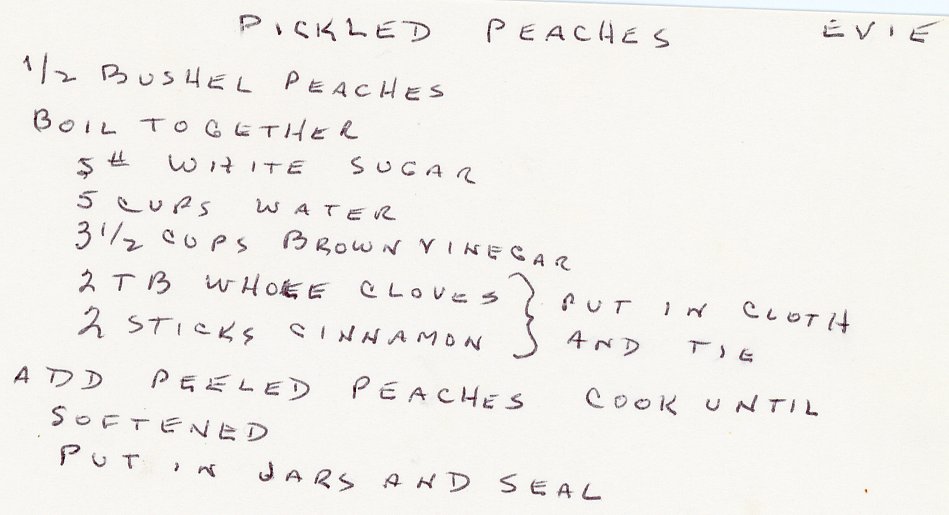 PICKLED PEACHES EVIE
1/2 BUSHEL PEACHES
BOIL TOGETHER
5# WHITE SUGAR
5 CUPS WATER
3 1/2 CUPS BROWN VINEGAR
2 TB WHOLE CLOVES } PUT IN CLOTH
2 STICKS CINNAMON } AND TIE
ADD PEELED PEACHES COOK UNTIL
SOFTENED
PUT IN JARS AND SEAL